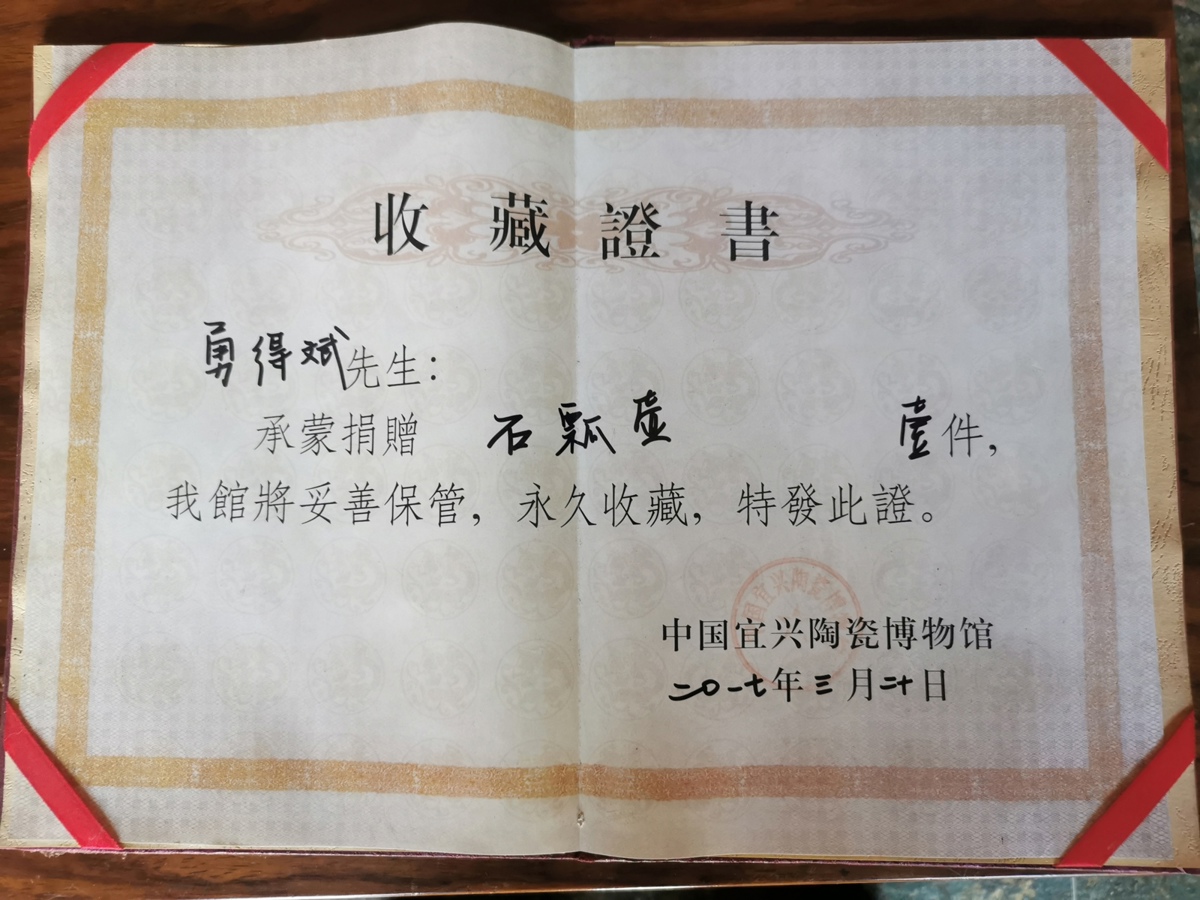 收藏證書
勇得斌先生：
承蒙捐贈 石瓢壶 壹件，
我館將妥善保管，永久收藏，特發此證。
中国宜兴陶瓷博物馆
二〇一七年三月二十日